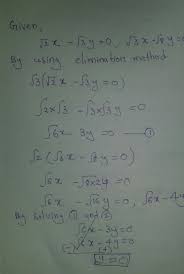 Given,
√2x - √3y = 0, √3x - √8y = 0
By using elimination method
√3(√2x - √3y = 0)
√2×√3 - √3×√3y = 0
√6x - 3y = 0 - ①
√2(√3x - √8y = 0)
√6x - √8×2y = 0
√6x - √16y = 0, √6x - 4y
By solving ① and ②
√6x - 3y = 0
√6x - 4y = 0
y = 0